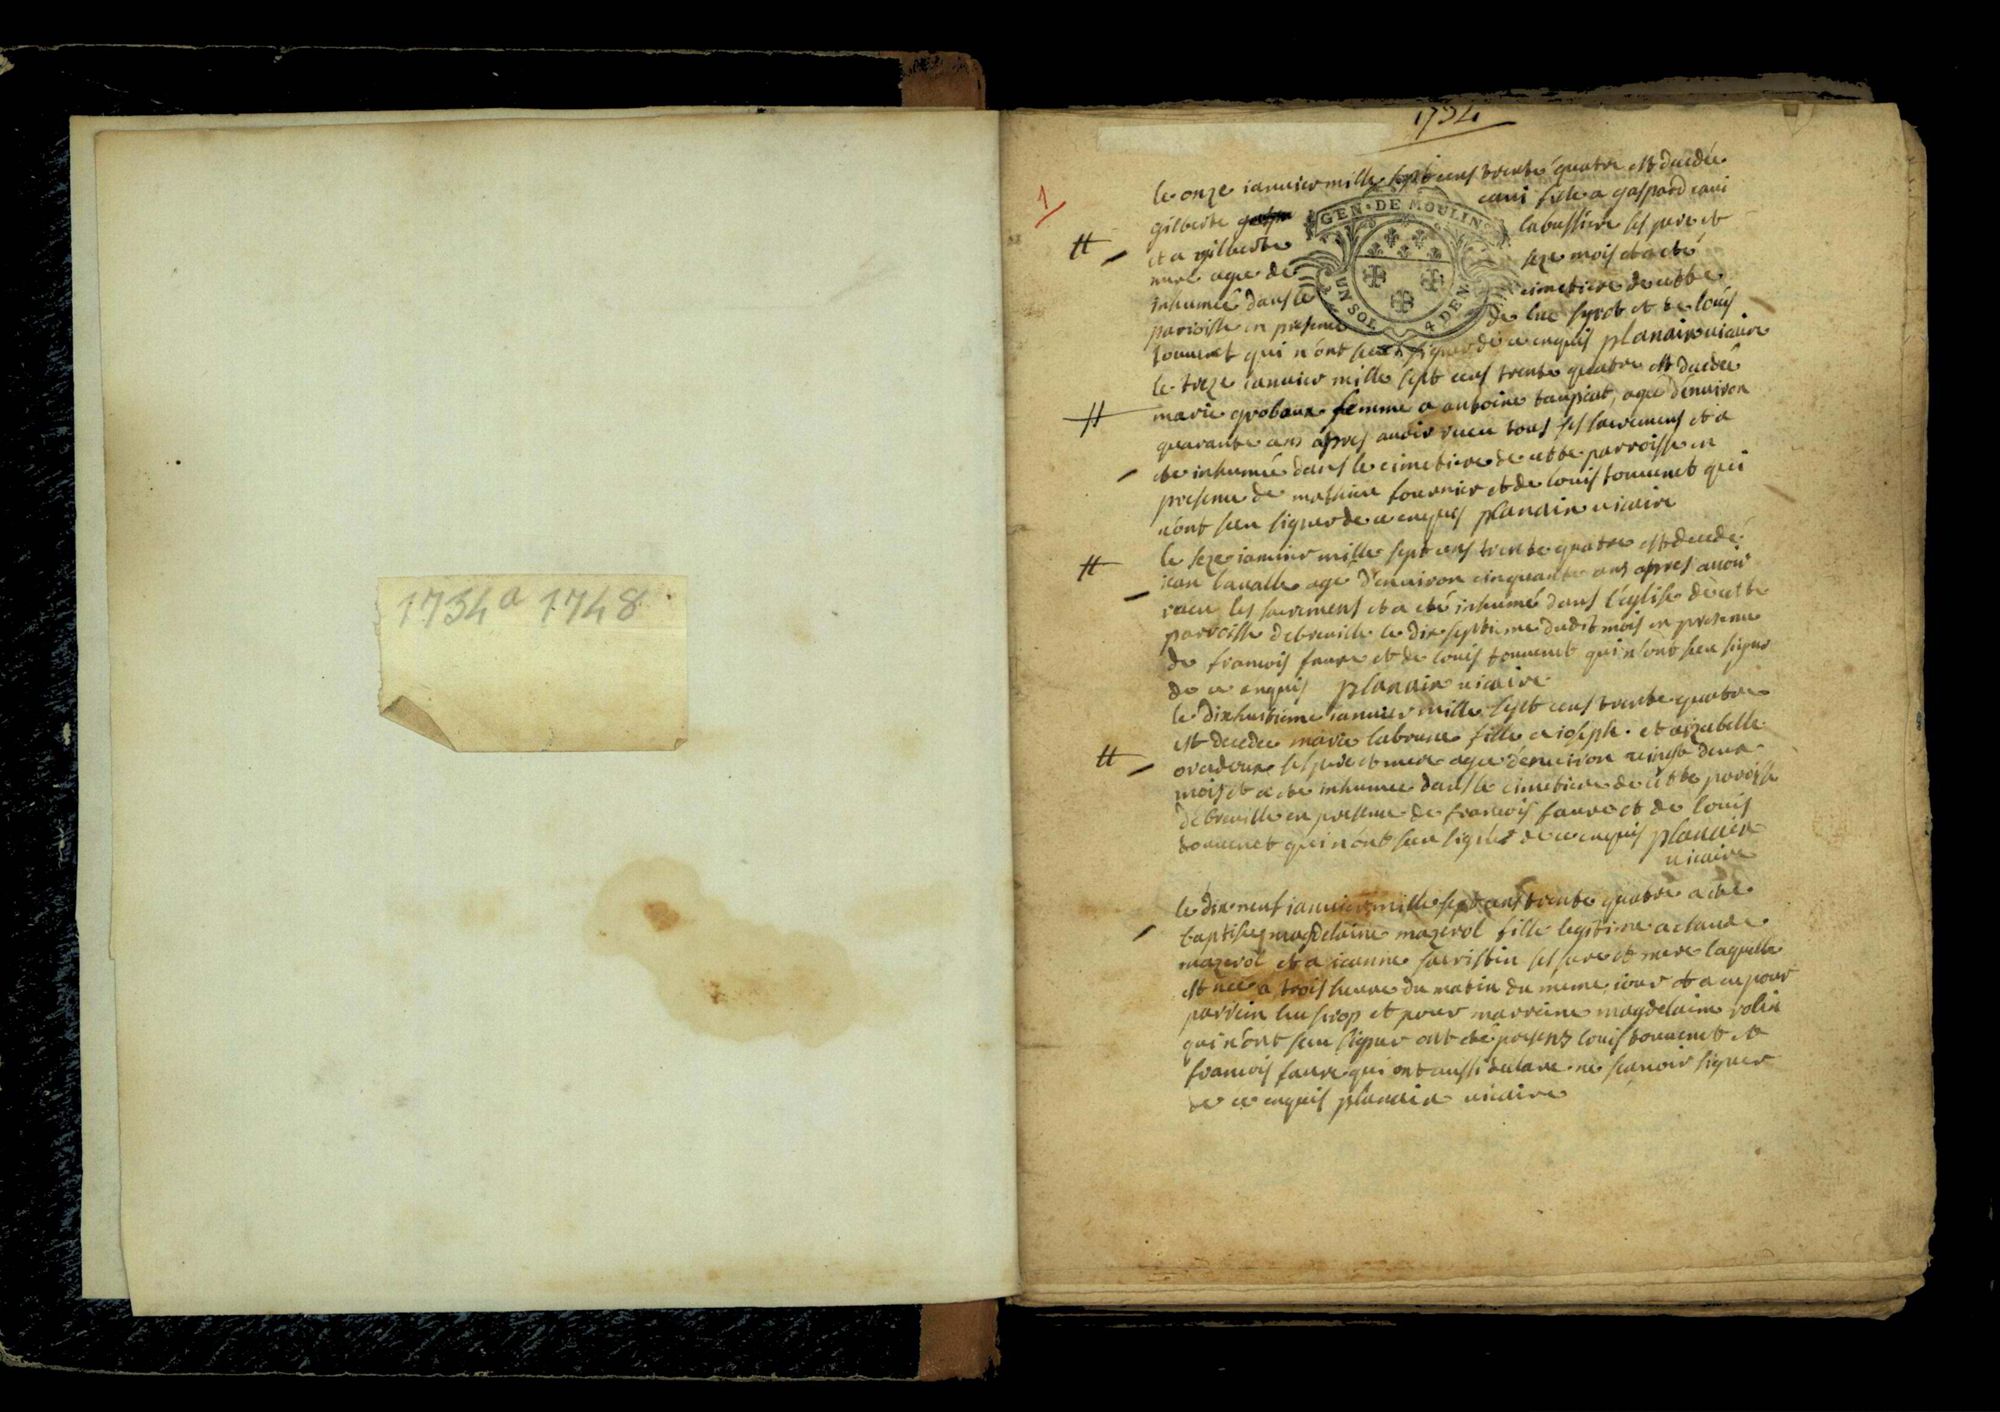 1734 a 1748
1734
1
le onze ianuier mille sept cens trente quatre est decedée
gilberte cani fille a gaspard cani
et a gilberte labussiere ses pere et
mere agee de seze mois et a eté
inhumée dans le cimetiere de cette
parroisse en presence de luc syrot et de louis
touuenet qui n'ont sceu signer de ce enquis planain uicaire
GEN · DE MOULINS
UN SOL 4 DEN
le treze ianuier mille sept cens trente quatre est decedée
marie femme a antoine agee denuiron
quarante ans apres auoir receu tous ses sacremens et a
ete inhumée dans le cimetiere de cette parroisse en
presence de mathieu fournier et de louis touuenet qui
n'ont sceu signer de ce enquis planain uicaire
le seze ianuier mille sept cens trente quatre est decedé
iean laualle agé d'enuiron cinquante ans apres auoir
receu les sacremens et a eté inhumé dans l'eglise de cette
parroisse debreuille le dix septieme dudit mois en presence
de francois faure et de louis touuenet qui n'ont sceu signer
de ce enquis planain uicaire
le dixhuitieme ianuier mille sept cens trente quatre
est decedee marie labrune fille a ioseph et a izabelle
ses pere et mere agee d'enuiron uingt deux
mois et a ete inhumee dans le cimetiere de cette paroisse
debreuille en presence de francois faure et de louis
touuenet qui n'ont sceu signer de ce enquis planain
uicaire
le dix neuf ianuier mille sept cens trente quatre a ete
baptisee magdelaine mazerol fille legitime a claude
mazerol et a ieanne sacristin ses pere et mere laquelle
est née a trois heure du matin du meme iour et a eu pour
parrein luc sirop et pour marreine magdelaine rolin
qui n'ont sceu signer ont eté presens louis touuenet et
francois faure qui ont aussi declare ne scauoir signer
de ce enquis planain uicaire